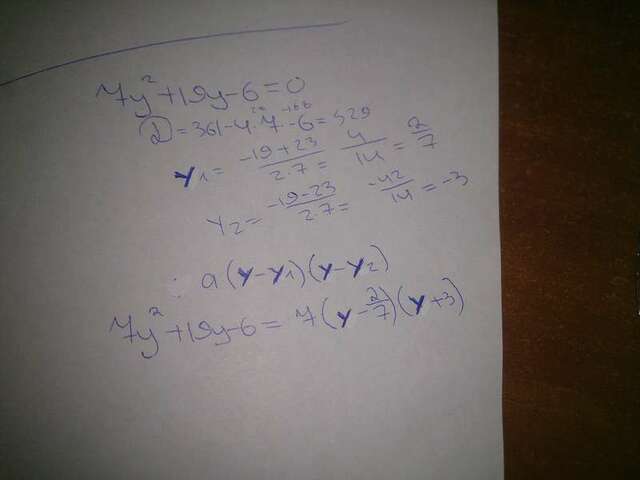 7y²+19y-6=0
D=361-4·7·-6=529
28 -168
y₁= -19+23/2·7= 4/14=2/7
y₂= -19-23/2·7= -42/14=-3
: a(y-y₁)(y-y₂)
7y²+19y-6=7(y-2/7)(y+3)